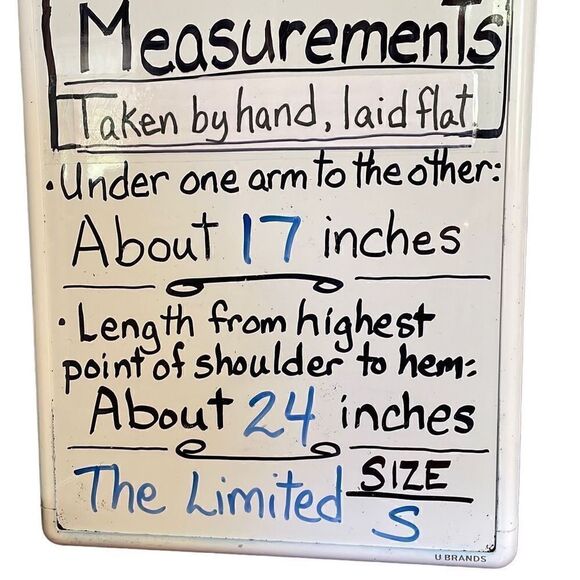 Measurements
Taken by hand, laid flat
• Under one arm to the other:
About 17 inches
• Length from highest
point of shoulder to hem:
About 24 inches
The Limited SIZE
S
U BRANDS